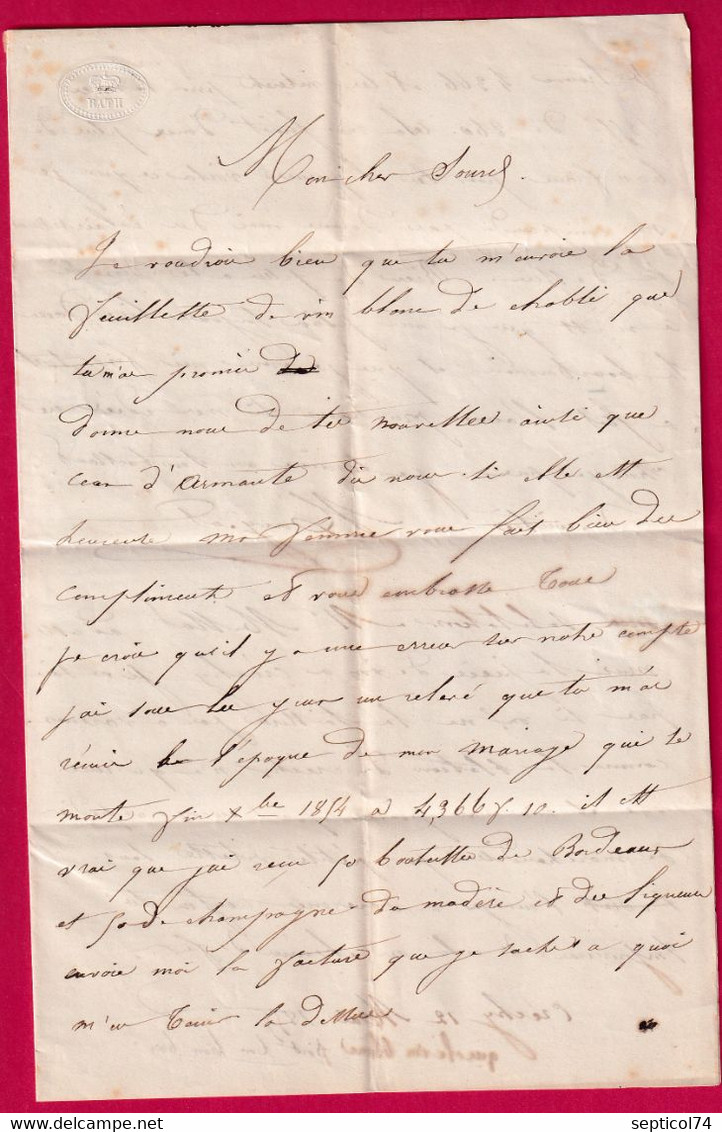 BATH
Mon cher Sourd.
Je voudrois bien que tu m'envoie la
feuillette de vin blanc de chabli que
tu m'as promis
donne nous de tes nouvelles ainsi que
d'Armante dis nous si elle est
heureuse ma femme vous fait bien des
compliments et vous embrasse tous
je crois qu'il y a une erreur sur notre compte
j'ai sous les yeux un relevé que tu m'as
remis le l'époque de mon mariage qui se
monte fin Xbre 1854 a 4,366 f. 10. il est
vrai que j'ai recu 50 bouteilles de Bordeaux
et 50 de champagne du madère et des liqueurs
envoie moi la facture que je sache a quoi
m'en tenir la dessus
septicol74